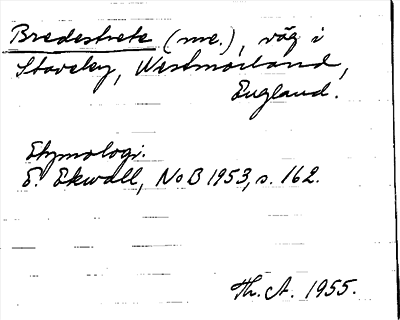 Bredestrete (me.), väg i
Staveley, Westmorland,
England.
Etymologi.
E. Ekwall, NoB 1953, s. 162.
Th. A. 1955.